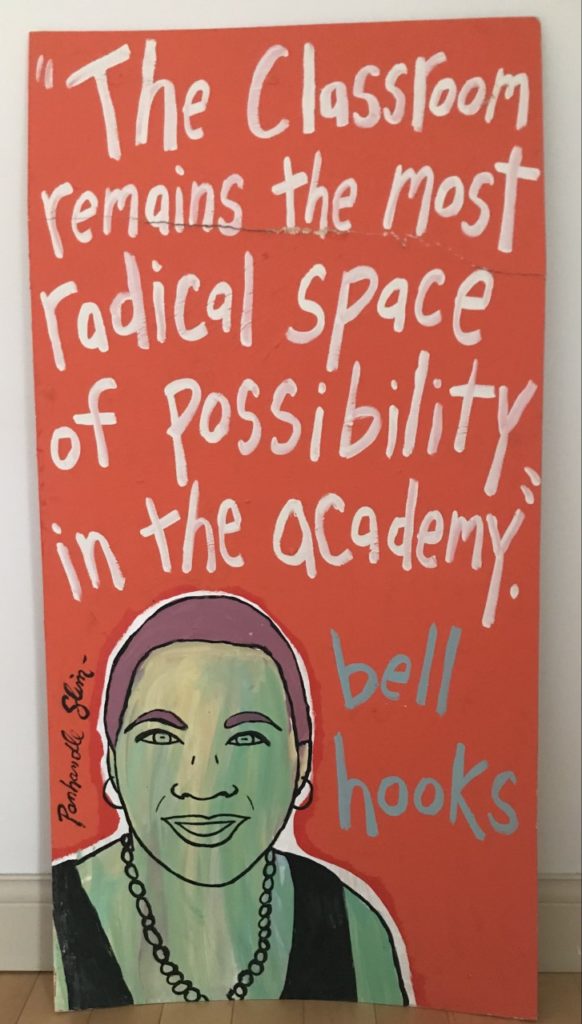 "The Classroom
remains the most
radical space
of possibility
in the academy."
bell
hooks
Panhandle Slim-